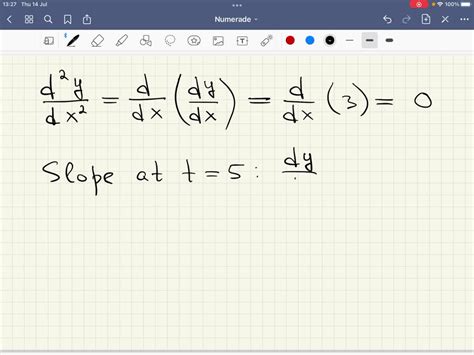 13:27 Thu 14 Jul
100%
Numerade
d²y/dx² = d/dx (dy/dx) = d/dx (3) = 0
Slope at t = 5 : dy